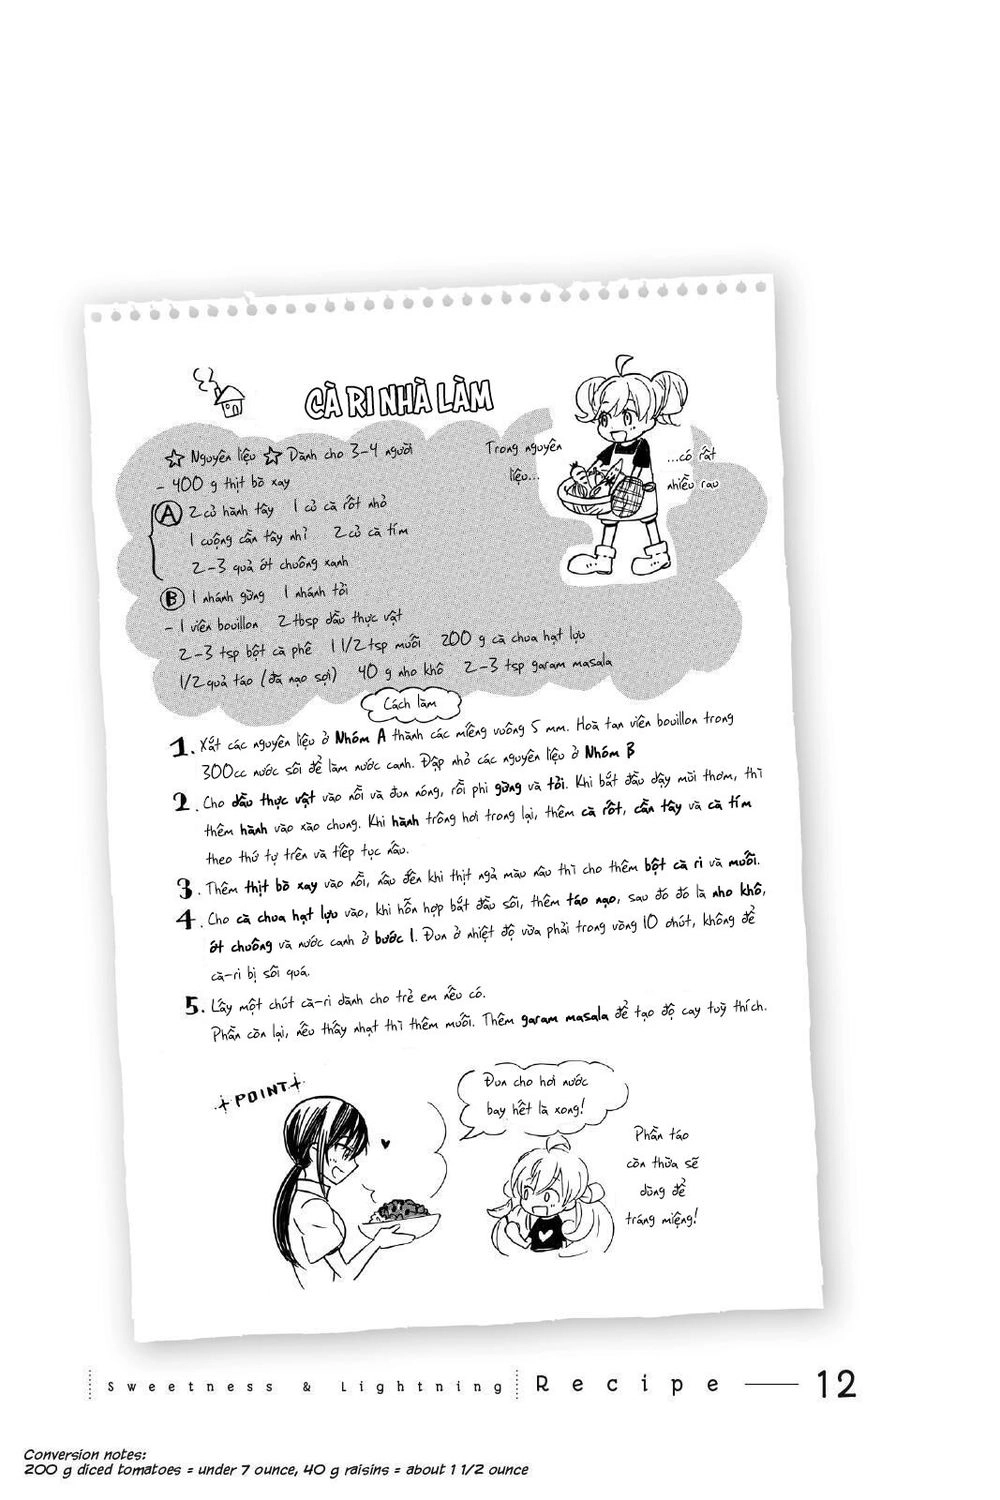 CÀ RI NHÀ LÀM
☆ Nguyên liệu ☆ Dành cho 3-4 người
- 400 g thịt bò xay
A 2 củ hành tây 1 củ cà rốt nhỏ
1 cuộng cần tây nhỉ 2 củ cà tím
2-3 quả ớt chuông xanh
B 1 nhánh gừng 1 nhánh tỏi
- 1 viên bouillon 2 tbsp dầu thực vật
2-3 tsp bột cà phê 1 1/2 tsp muối 200 g cà chua hạt lựu
1/2 quả táo (đã nạo sợi) 40 g nho khô 2-3 tsp garam masala
Trong nguyên
liệu...
...có rất
nhiều rau
Cách làm
1. Xắt các nguyên liệu ở Nhóm A thành các miếng vuông 5 mm. Hoà tan viên bouillon trong
300cc nước sôi để làm nước canh. Đập nhỏ các nguyên liệu ở Nhóm B
2. Cho dầu thực vật vào nồi và đun nóng, rồi phi gừng và tỏi. Khi bắt đầu dậy mùi thơm, thì
thêm hành vào xào chung. Khi hành trông hơi trong lại, thêm cà rốt, cần tây và cà tím
theo thứ tự trên và tiếp tục nấu.
3. Thêm thịt bò xay vào nồi, nấu đến khi thịt ngả màu nâu thì cho thêm bột cà ri và muối.
4. Cho cà chua hạt lựu vào, khi hỗn hợp bắt đầu sôi, thêm táo nạo, sau đó đó là nho khô,
ớt chuông và nước canh ở bước 1. Đun ở nhiệt độ vừa phải trong vòng 10 phút, không để
cà-ri bị sôi quá.
5. Lấy một chút cà-ri dành cho trẻ em nếu có.
Phần còn lại, nếu thấy nhạt thì thêm muối. Thêm garam masala để tạo độ cay tuỳ thích.
POINT
Đun cho hơi nước
bay hết là xong!
Phần táo
còn thừa sẽ
dùng để
tráng miệng!
Sweetness & Lightning Recipe 12
Conversion notes:
200 g diced tomatoes = under 7 ounce, 40 g raisins = about 1 1/2 ounce